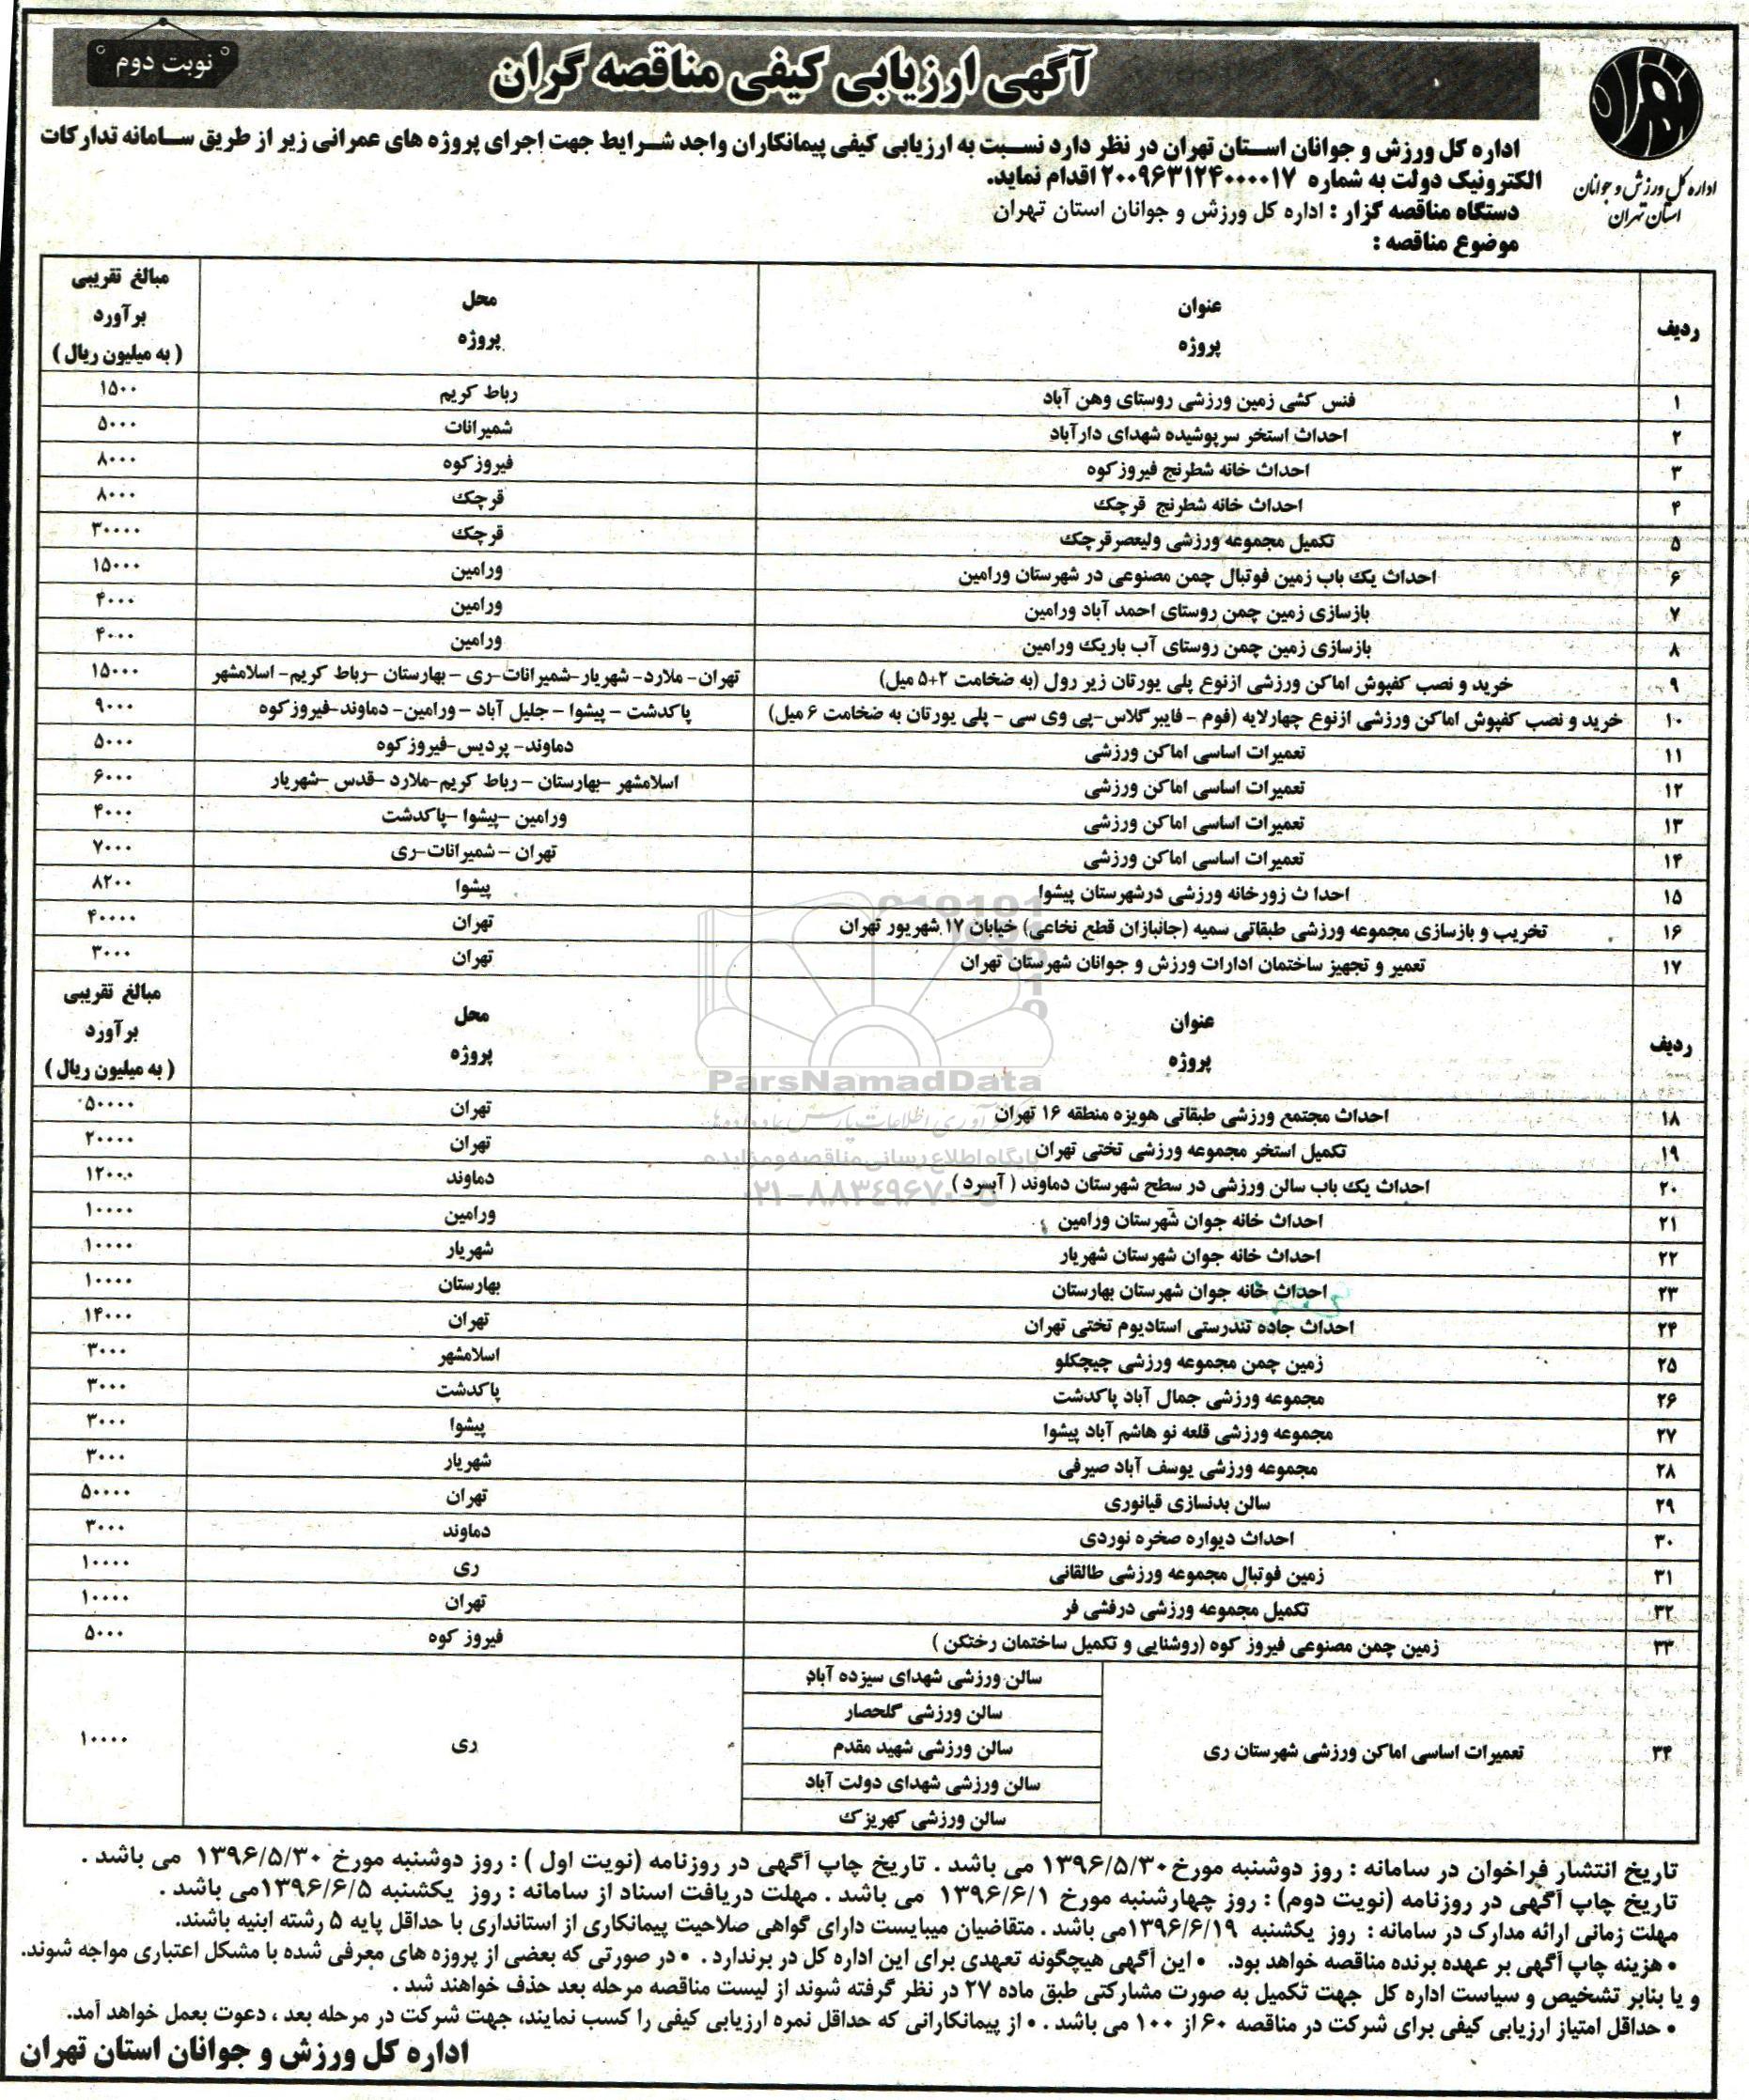 نوبت دوم
آگهی ارزیابی کیفی مناقصه گران
اداره کل ورزش و جوانان
استان تهران
اداره کل ورزش و جوانان استان تهران در نظر دارد نسبت به ارزیابی کیفی پیمانکاران واجد شرایط جهت اجرای پروژه های عمرانی زیر از طریق سامانه تدارکات
الکترونیک دولت به شماره ۲۰۰۹۶۳۱۲۴۰۰۰۰۱۷ اقدام نماید.
دستگاه مناقصه گزار : اداره کل ورزش و جوانان استان تهران
موضوع مناقصه :
ردیف عنوان پروژه محل پروژه مبالغ تقریبی برآورد ( به میلیون ریال )
۱ فنس کشی زمین ورزشی روستای وهن آباد رباط کریم ۱۵۰۰
۲ احداث استخر سرپوشیده شهدای دارآباد شمیرانات ۵۰۰۰
۳ احداث خانه شطرنج فیروزکوه فیروزکوه ۸۰۰۰
۴ احداث خانه شطرنج قرچک قرچک ۸۰۰۰
۵ تکمیل مجموعه ورزشی ولیعصرقرچک قرچک ۳۰۰۰۰
۶ احداث یک باب زمین فوتبال چمن مصنوعی در شهرستان ورامین ورامین ۱۵۰۰۰
۷ بازسازی زمین چمن روستای احمد آباد ورامین ورامین ۴۰۰۰
۸ بازسازی زمین چمن روستای آب باریک ورامین ورامین ۴۰۰۰
۹ خرید و نصب کفپوش اماکن ورزشی ازنوع پلی یورتان زیر رول (به ضخامت ۲+۵ میل) تهران- ملارد- شهریار-شمیرانات-ری - بهارستان -رباط کریم- اسلامشهر ۱۵۰۰۰
۱۰ خرید و نصب کفپوش اماکن ورزشی ازنوع چهارلایه (فوم - فایبرگلاس-پی وی سی - پلی یورتان به ضخامت ۶ میل) پاکدشت - پیشوا - جلیل آباد - ورامین- دماوند-فیروزکوه ۹۰۰۰
۱۱ تعمیرات اساسی اماکن ورزشی دماوند- پردیس-فیروزکوه ۵۰۰۰
۱۲ تعمیرات اساسی اماکن ورزشی اسلامشهر -بهارستان - رباط کریم-ملارد -قدس -شهریار ۶۰۰۰
۱۳ تعمیرات اساسی اماکن ورزشی ورامین -پیشوا -پاکدشت ۴۰۰۰
۱۴ تعمیرات اساسی اماکن ورزشی تهران - شمیرانات-ری ۷۰۰۰
۱۵ احدا ث زورخانه ورزشی درشهرستان پیشوا پیشوا ۸۲۰۰
۱۶ تخریب و بازسازی مجموعه ورزشی طبقاتی سمیه (جانبازان قطع نخاعی) خیابان ۱۷ شهریور تهران تهران ۴۰۰۰۰
۱۷ تعمیر و تجهیز ساختمان ادارات ورزش و جوانان شهرستان تهران تهران ۳۰۰۰
ردیف عنوان پروژه محل پروژه مبالغ تقریبی برآورد ( به میلیون ریال )
ParsNamadData
۱۸ احداث مجتمع ورزشی طبقاتی هویزه منطقه ۱۶ تهران تهران ۵۰۰۰۰
۱۹ تکمیل استخر مجموعه ورزشی تختی تهران تهران ۲۰۰۰۰
پایگاه اطلاع رسانی مناقصه و مزایده
۲۰ احداث یک باب سالن ورزشی در سطح شهرستان دماوند ( آبسرد ) دماوند ۱۲۰۰۰
۰۲۱-۸۸۳۴۹۶۷۰-۵
۲۱ احداث خانه جوان شهرستان ورامین ورامین ۱۰۰۰۰
۲۲ احداث خانه جوان شهرستان شهریار شهریار ۱۰۰۰۰
۲۳ احداث خانه جوان شهرستان بهارستان بهارستان ۱۰۰۰۰
۲۴ احداث جاده تندرستی استادیوم تختی تهران تهران ۱۴۰۰۰
۲۵ زمین چمن مجموعه ورزشی چیچکلو اسلامشهر ۳۰۰۰
۲۶ مجموعه ورزشی جمال آباد پاکدشت پاکدشت ۳۰۰۰
۲۷ مجموعه ورزشی قلعه نو هاشم آباد پیشوا پیشوا ۳۰۰۰
۲۸ مجموعه ورزشی یوسف آباد صیرفی شهریار ۳۰۰۰
۲۹ سالن بدنسازی قیانوری تهران ۵۰۰۰۰
۳۰ احداث دیواره صخره نوردی دماوند ۳۰۰۰
۳۱ زمین فوتبال مجموعه ورزشی طالقانی ری ۱۰۰۰۰
۳۲ تکمیل مجموعه ورزشی درفشی فر تهران ۱۰۰۰۰
۳۳ زمین چمن مصنوعی فیروز کوه (روشنایی و تکمیل ساختمان رختکن ) فیروز کوه ۵۰۰۰
۳۴ تعمیرات اساسی اماکن ورزشی شهرستان ری ری ۱۰۰۰۰
سالن ورزشی شهدای سیزده آباد
سالن ورزشی گلحصار
سالن ورزشی شهید مقدم
سالن ورزشی شهدای دولت آباد
سالن ورزشی کهریزک
تاریخ انتشار فراخوان در سامانه : روز دوشنبه مورخ ۱۳۹۶/۵/۳۰ می باشد . تاریخ چاپ آگهی در روزنامه (نوبت اول ) : روز دوشنبه مورخ ۱۳۹۶/۵/۳۰ می باشد .
تاریخ چاپ آگهی در روزنامه (نوبت دوم) : روز چهارشنبه مورخ ۱۳۹۶/۶/۱ می باشد . مهلت دریافت اسناد از سامانه : روز یکشنبه ۱۳۹۶/۶/۵می باشد .
مهلت زمانی ارائه مدارک در سامانه : روز یکشنبه ۱۳۹۶/۶/۱۹می باشد . متقاضیان میبایست دارای گواهی صلاحیت پیمانکاری از استانداری با حداقل پایه ۵ رشته ابنیه باشند.
• هزینه چاپ آگهی بر عهده برنده مناقصه خواهد بود. • این آگهی هیچگونه تعهدی برای این اداره کل در برندارد . • در صورتی که بعضی از پروزه های معرفی شده با مشکل اعتباری مواجه شوند.
و یا بنابر تشخیص و سیاست اداره کل جهت تکمیل به صورت مشارکتی طبق ماده ۲۷ در نظر گرفته شوند از لیست مناقصه مرحله بعد حذف خواهند شد .
• حداقل امتیاز ارزیابی کیفی برای شرکت در مناقصه ۶۰ از ۱۰۰ می باشد . • از پیمانکارانی که حداقل نمره ارزیابی کیفی را کسب نمایند، جهت شرکت در مرحله بعد ، دعوت بعمل خواهد آمد.
اداره کل ورزش و جوانان استان تهران